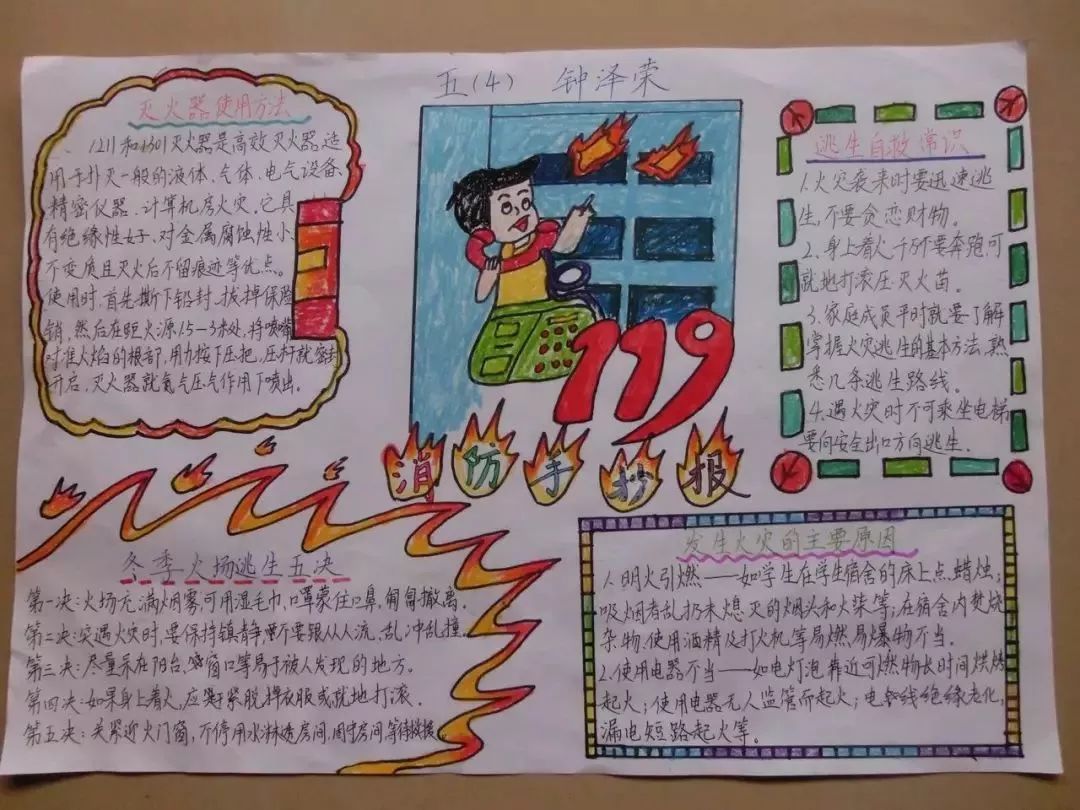 五(4) 钟泽荣
灭火器使用方法
1211和1301灭火器是高效灭火器,适
用于扑灭一般的液体、气体、电气设备、
精密仪器、计算机房火灾。它具
有绝缘性好、对金属腐蚀性小、
不变质且灭火后不留痕迹等优点。
使用时,首先撕下铅封、拔掉保险
销,然后在距火源1.5-3米处,将喷嘴
对准火焰的根部,用力按下压把,压杆就密封
开启,灭火器就氮气压气作用下喷出。
119
消防手抄报
逃生自救常识
1.火灾袭来时要迅速逃
生,不要贪恋财物。
2.身上着火千万不要奔跑可
就地打滚压灭火苗。
3.家庭成员平时就要了解
掌握火灾逃生的基本方法,熟
悉几条逃生路线。
4.遇火灾时不可乘坐电梯
要向安全出口方向逃生。
冬季火场逃生五决
第一决:火场充满烟雾,可用湿毛巾、口罩蒙住口鼻,匍匐撤离。
第二决:突遇火灾时,要保持镇静不要跟从人流,乱冲乱撞。
第三决:尽量呆在阳台,窗口等易于被人发现的地方。
第四决:如果身上着火,应赶紧脱掉衣服或就地打滚。
第五决:关紧近火门窗,不停用水淋透房间,固守房间,等待救援。
发生火灾的主要原因
1.明火引燃——如学生在学生宿舍的床上点蜡烛;
吸烟者乱扔未熄灭的烟头和火柴等;在宿舍内焚烧
杂物、使用酒精及打火机等易燃易爆物不当。
2.使用电器不当——如电灯泡靠近可燃物长时间烘烤
起火;使用电器无人监管而起火;电线绝缘老化,
漏电短路起火等。